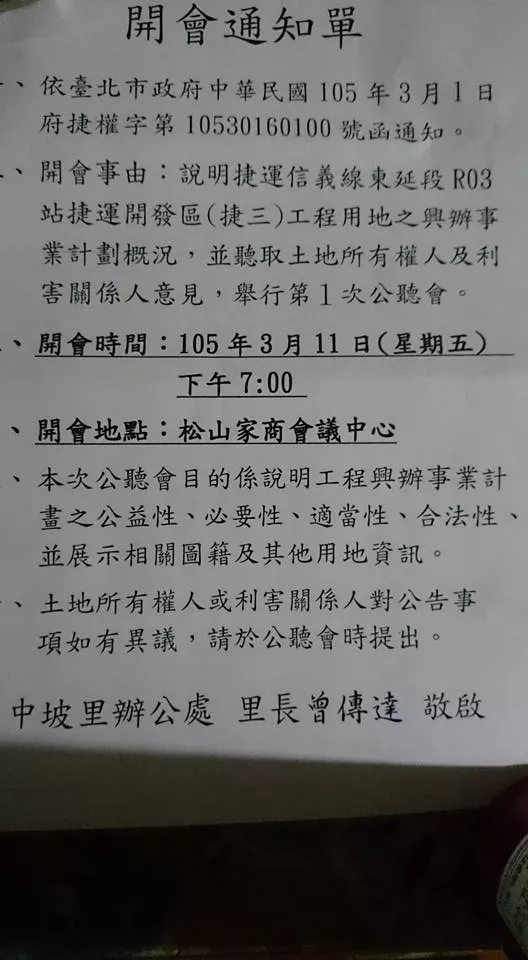 開會通知單
、依臺北市政府中華民國 105 年 3 月 1 日
府捷權字第 10530160100 號函通知。
、開會事由：說明捷運信義線東延段 R03
站捷運開發區(捷三)工程用地之興辦事
業計劃概況，並聽取土地所有權人及利
害關係人意見，舉行第 1 次公聽會。
、開會時間：105 年 3 月 11 日(星期五)
下午 7:00
、開會地點：松山家商會議中心
、本次公聽會目的係說明工程興辦事業計
畫之公益性、必要性、適當性、合法性、
並展示相關圖籍及其他用地資訊。
、土地所有權人或利害關係人對公告事
項如有異議，請於公聽會時提出。
中坡里辦公處 里長曾傳達 敬啟